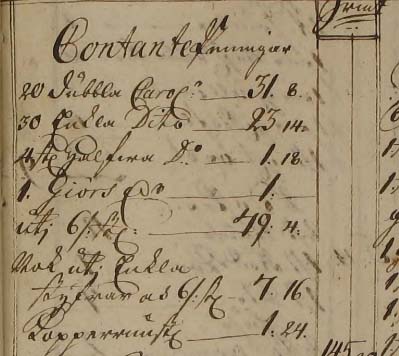 Contante Penningar
20 Dubbla Carol: 31. 8.
30 Enkla Dito 23 14.
4 st Half ira D:o 1. 18
1. Giörs 1.
utj 6/: st: 49. 4.
Nok utj Enkla
styfrar a 6/: st 7. 16
Koppermÿnt 1. 24.
145